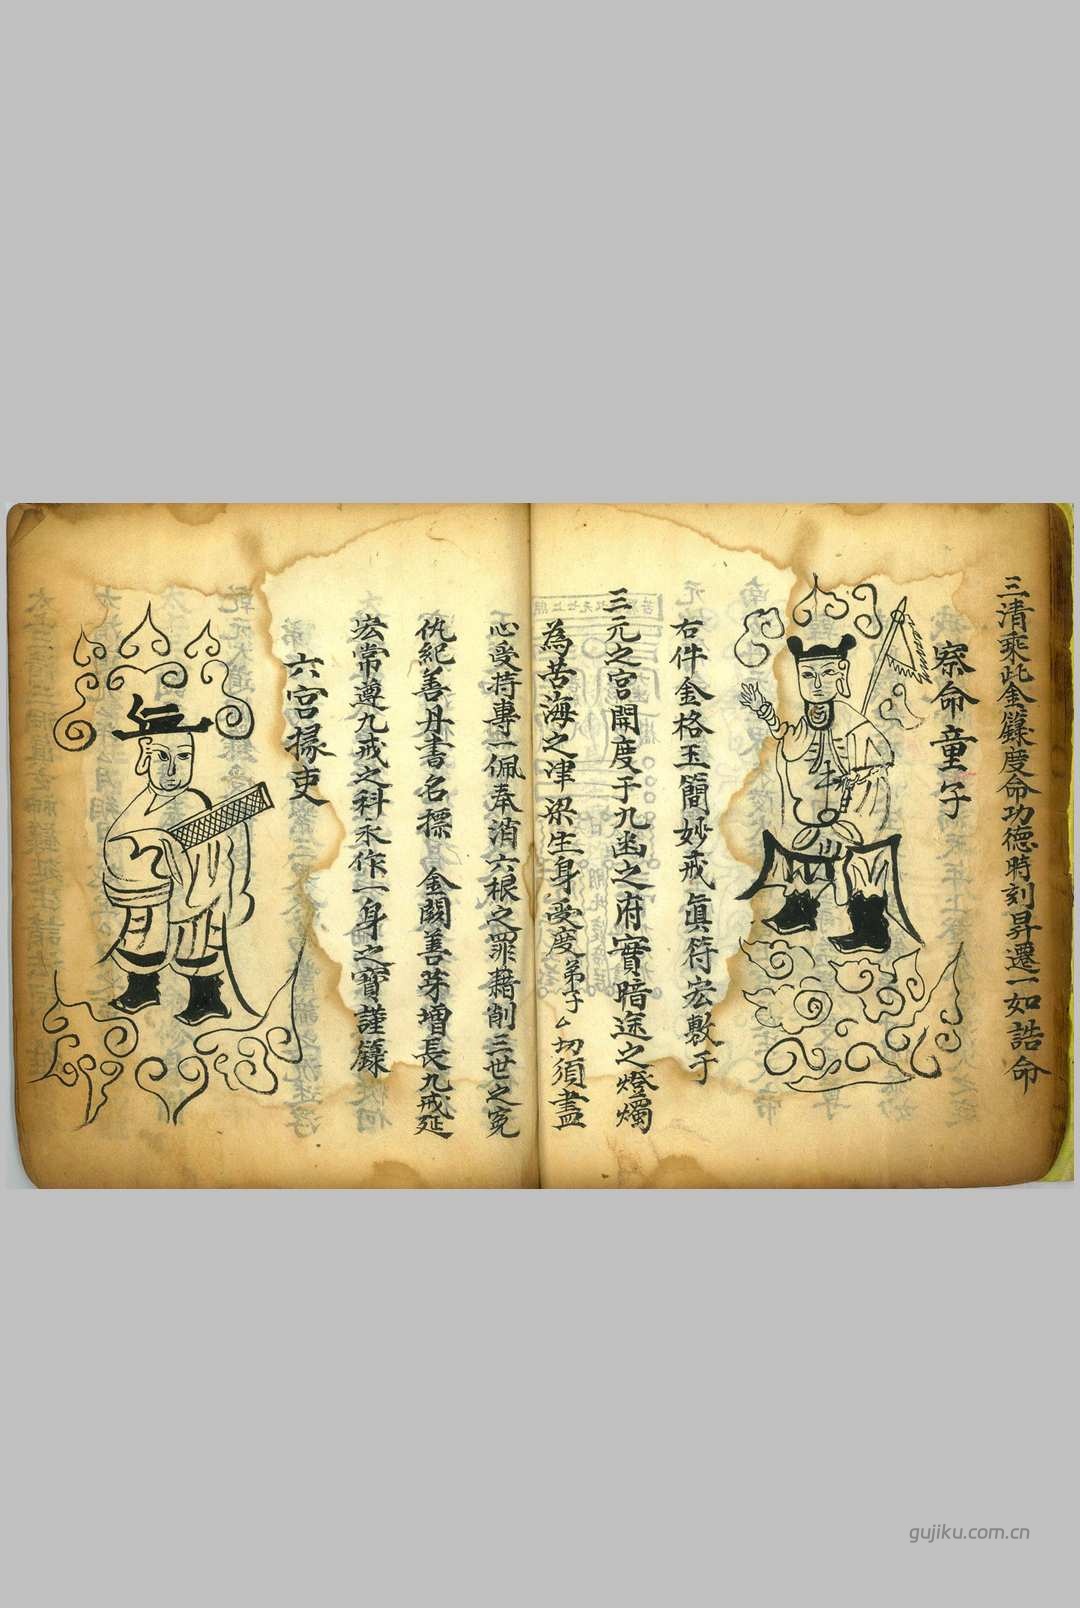 三清乘此金籙度命功德時刻昇遷一如誥命
察命童子
右件金格玉簡妙戒眞符宏敷于
三元之宮開度于九幽之府實暗途之燈燭
為苦海之津梁生身受度弟子△一切須盡
心受持專一佩奉消六根之罪籍削三世之冤
仇紀善丹書名標金闕善芽增長九戒延
宏常遵九戒之科永作一身之寶謹籙
六宮掾吏
gujiku.com.cn